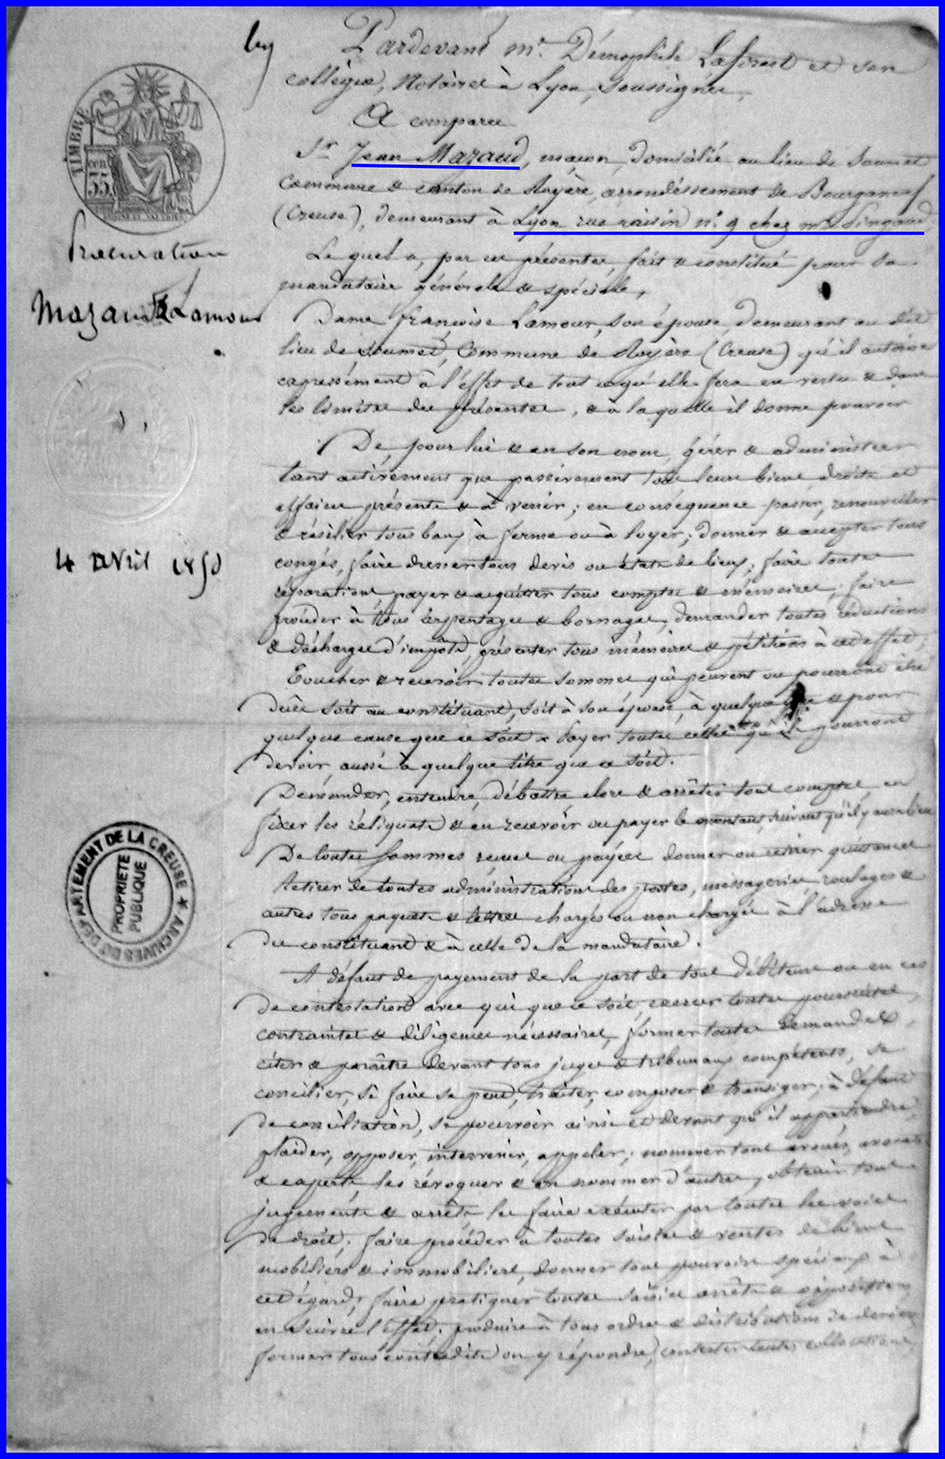 Pardevant Me. Démophile Laforest et son
collègue, Notaires à Lyon, soussignés,
A comparu
Sr. Jean Mazaud, maçon, domicilié au lieu de Soumet
Commune & canton de Royère, arrondissement de Bourganeuf
(Creuse), demeurant à Lyon rue raisin n° 9 chez mr.
Lequel a, par ces présentes, fait & constitué pour sa
mandataire générale & spéciale,
Dame françoise Lamour, son épouse, demeurant au dit
lieu de Soumet, Commune de Royère (Creuse) qu'il autorise
expressément à l'effet de tout ce qu'elle fera en vertu & dans
les limites des présentes, & à laquelle il donne pouvoir
De pour lui & en son nom, gérer & administrer
tant activement que passivement tous leurs biens droits et
affaires présents & à venir; en conséquence passer, renouveller
& résilier tous baux à ferme ou à loyer; donner & accepter tous
congés, faire dresser tous devis ou états de lieux; faire toutes
réparations, payer & acquitter tous comptes & mémoires; faire
procéder à tous arpentages & bornages, demander toutes réductions
& décharges d'impôts, présenter tous mémoires & pétitions à cet effet;
Toucher & recevoir toutes sommes qui peuvent ou pourront être
dues soit au constituant, soit à son épouse, à quelque & pour
quelque cause que ce soit & payer toutes celles qu'ils pourront
devoir aussi à quelque titre que ce soit.
Demander, entendre, débattre clore & arrêter tous comptes en
fixer les réliquats & en recevoir ou payer le montant, suivant qu'il y aura lieu
De toutes sommes reçues ou payées donner ou retirer quittances
Retirer de toutes administrations des postes, messageries roulages &
autres tous paquets & lettres chargés ou non chargés à l'adresse
du constituant & à celle de la mandataire.
A défaut de payement de la part de tous débiteurs ou en cas
de contestation avec qui que ce soit, exercer toutes poursuites,
contraintes & diligences nécessaires, former toutes demandes,
citer & paraître devant tous juges & tribunaux compétents, se
concilier, si faire se peut, traiter, composer & transiger; à défaut
de conciliation, se pourvoir ainsi et devant qui il appartiendra,
plaider, opposer, intervenir, appeler; nommer tous avoués, avocats
& experts les révoquer & en nommer d'autres, obtenir tous
jugements & arrêts les faire exécuter par toutes les voies
de droit; faire procéder à toutes saisies & ventes de biens
mobiliers & immobiliers, donner tous pouvoirs spéciaux à
cet égard; faire pratiquer toutes saisies arrêts & oppositions
en suivre l'effet; produire à tous ordres & distributions de deniers
former tous contredits ou y répondre, contester toutes collocations
TIMBRE
cen
35
Procuration
Mazaud & Lamour
4 avril 1850
ARCHIVES DU DÉPARTEMENT DE LA CREUSE
PROPRIETE
PUBLIQUE